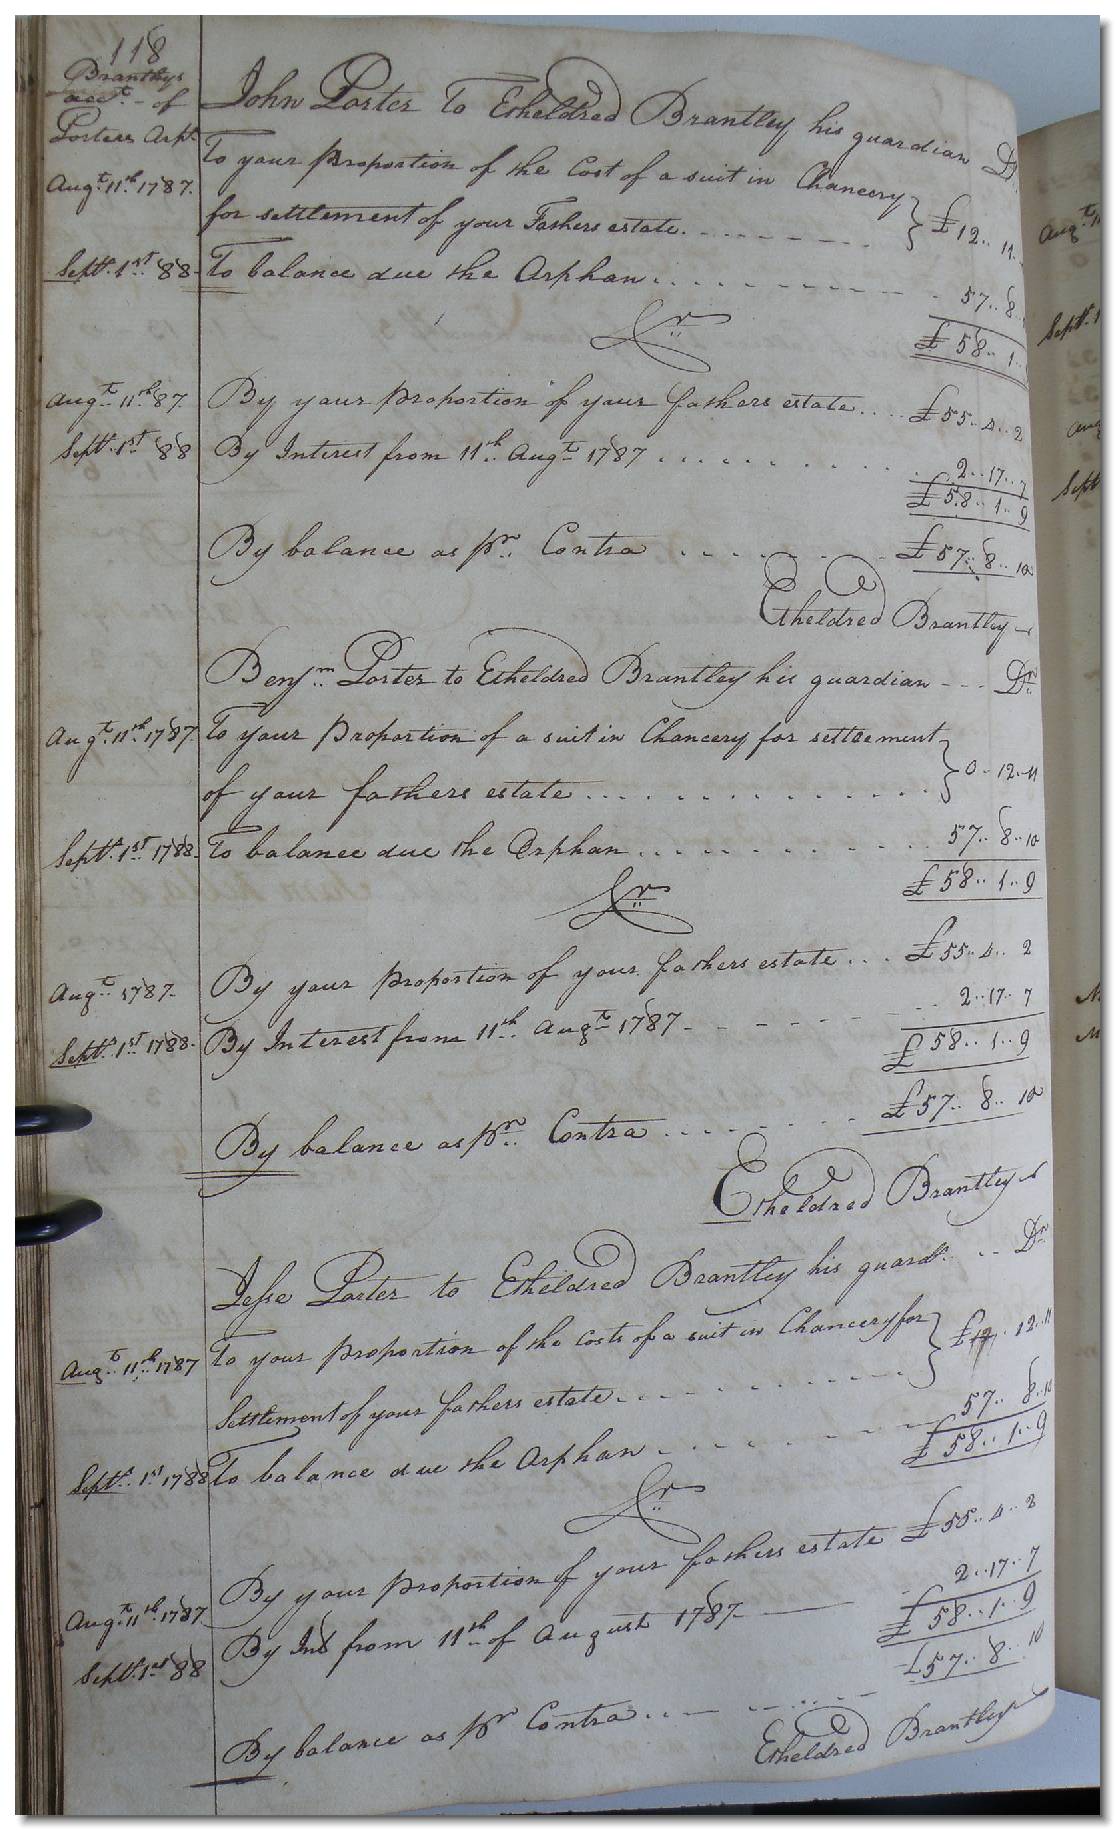 118
Brantleys
acct. of
Porters Arpt.
John Porter To Etheldred Brantley his guardian Dr.
Augt. 11th 1787. To your proportion of the Cost of a suit in Chancery
for settlement of your Fathers estate. £12.. 11.
Sept. 1st 88 To balance due the Orphan 57.. 8..
£58.. 1..
Cr.
Augt. 11th 87 By your proportion of your fathers estate £55.. 4.. 2
Sept. 1st 88 By Interest from 11th Augt. 1787 2.. 17.. 7
£58.. 1.. 9
By balance as pr. Contra £57.. 8.. 10
Etheldred Brantley
Benjm. Porter to Etheldred Brantley his guardian Dr.
Augt. 11th 1787. To your proportion of a suit in Chancery for settlement
of your fathers estate 0.. 12.. 11
Sept. 1st 1788. To balance due the Orphan 57.. 8.. 10
£58.. 1.. 9
Cr.
Augt. 1787. By your proportion of your fathers estate £55.. 4.. 2
Sept. 1st 1788. By Interest from 11th Augt. 1787 2.. 17.. 7
£58.. 1.. 9
By balance as pr. Contra £57.. 8.. 10
Etheldred Brantley
Jesse Porter to Etheldred Brantley his guard. Dr.
Augt. 11th 1787 To your proportion of the costs of a suit in Chancery for
Settlement of your fathers estate £ 12.. 11
Sept. 1st 1788 To balance due the Orphan 57.. 8.. 10
£58.. 1.. 9
Cr.
Augt. 11th 1787 By your proportion of your fathers estate £55.. 4.. 2
Sept. 1st 88 By Int from 11th of August 1787 2.. 17.. 7
£58.. 1.. 9
By balance as pr Contra £57.. 8.. 10
Etheldred Brantley